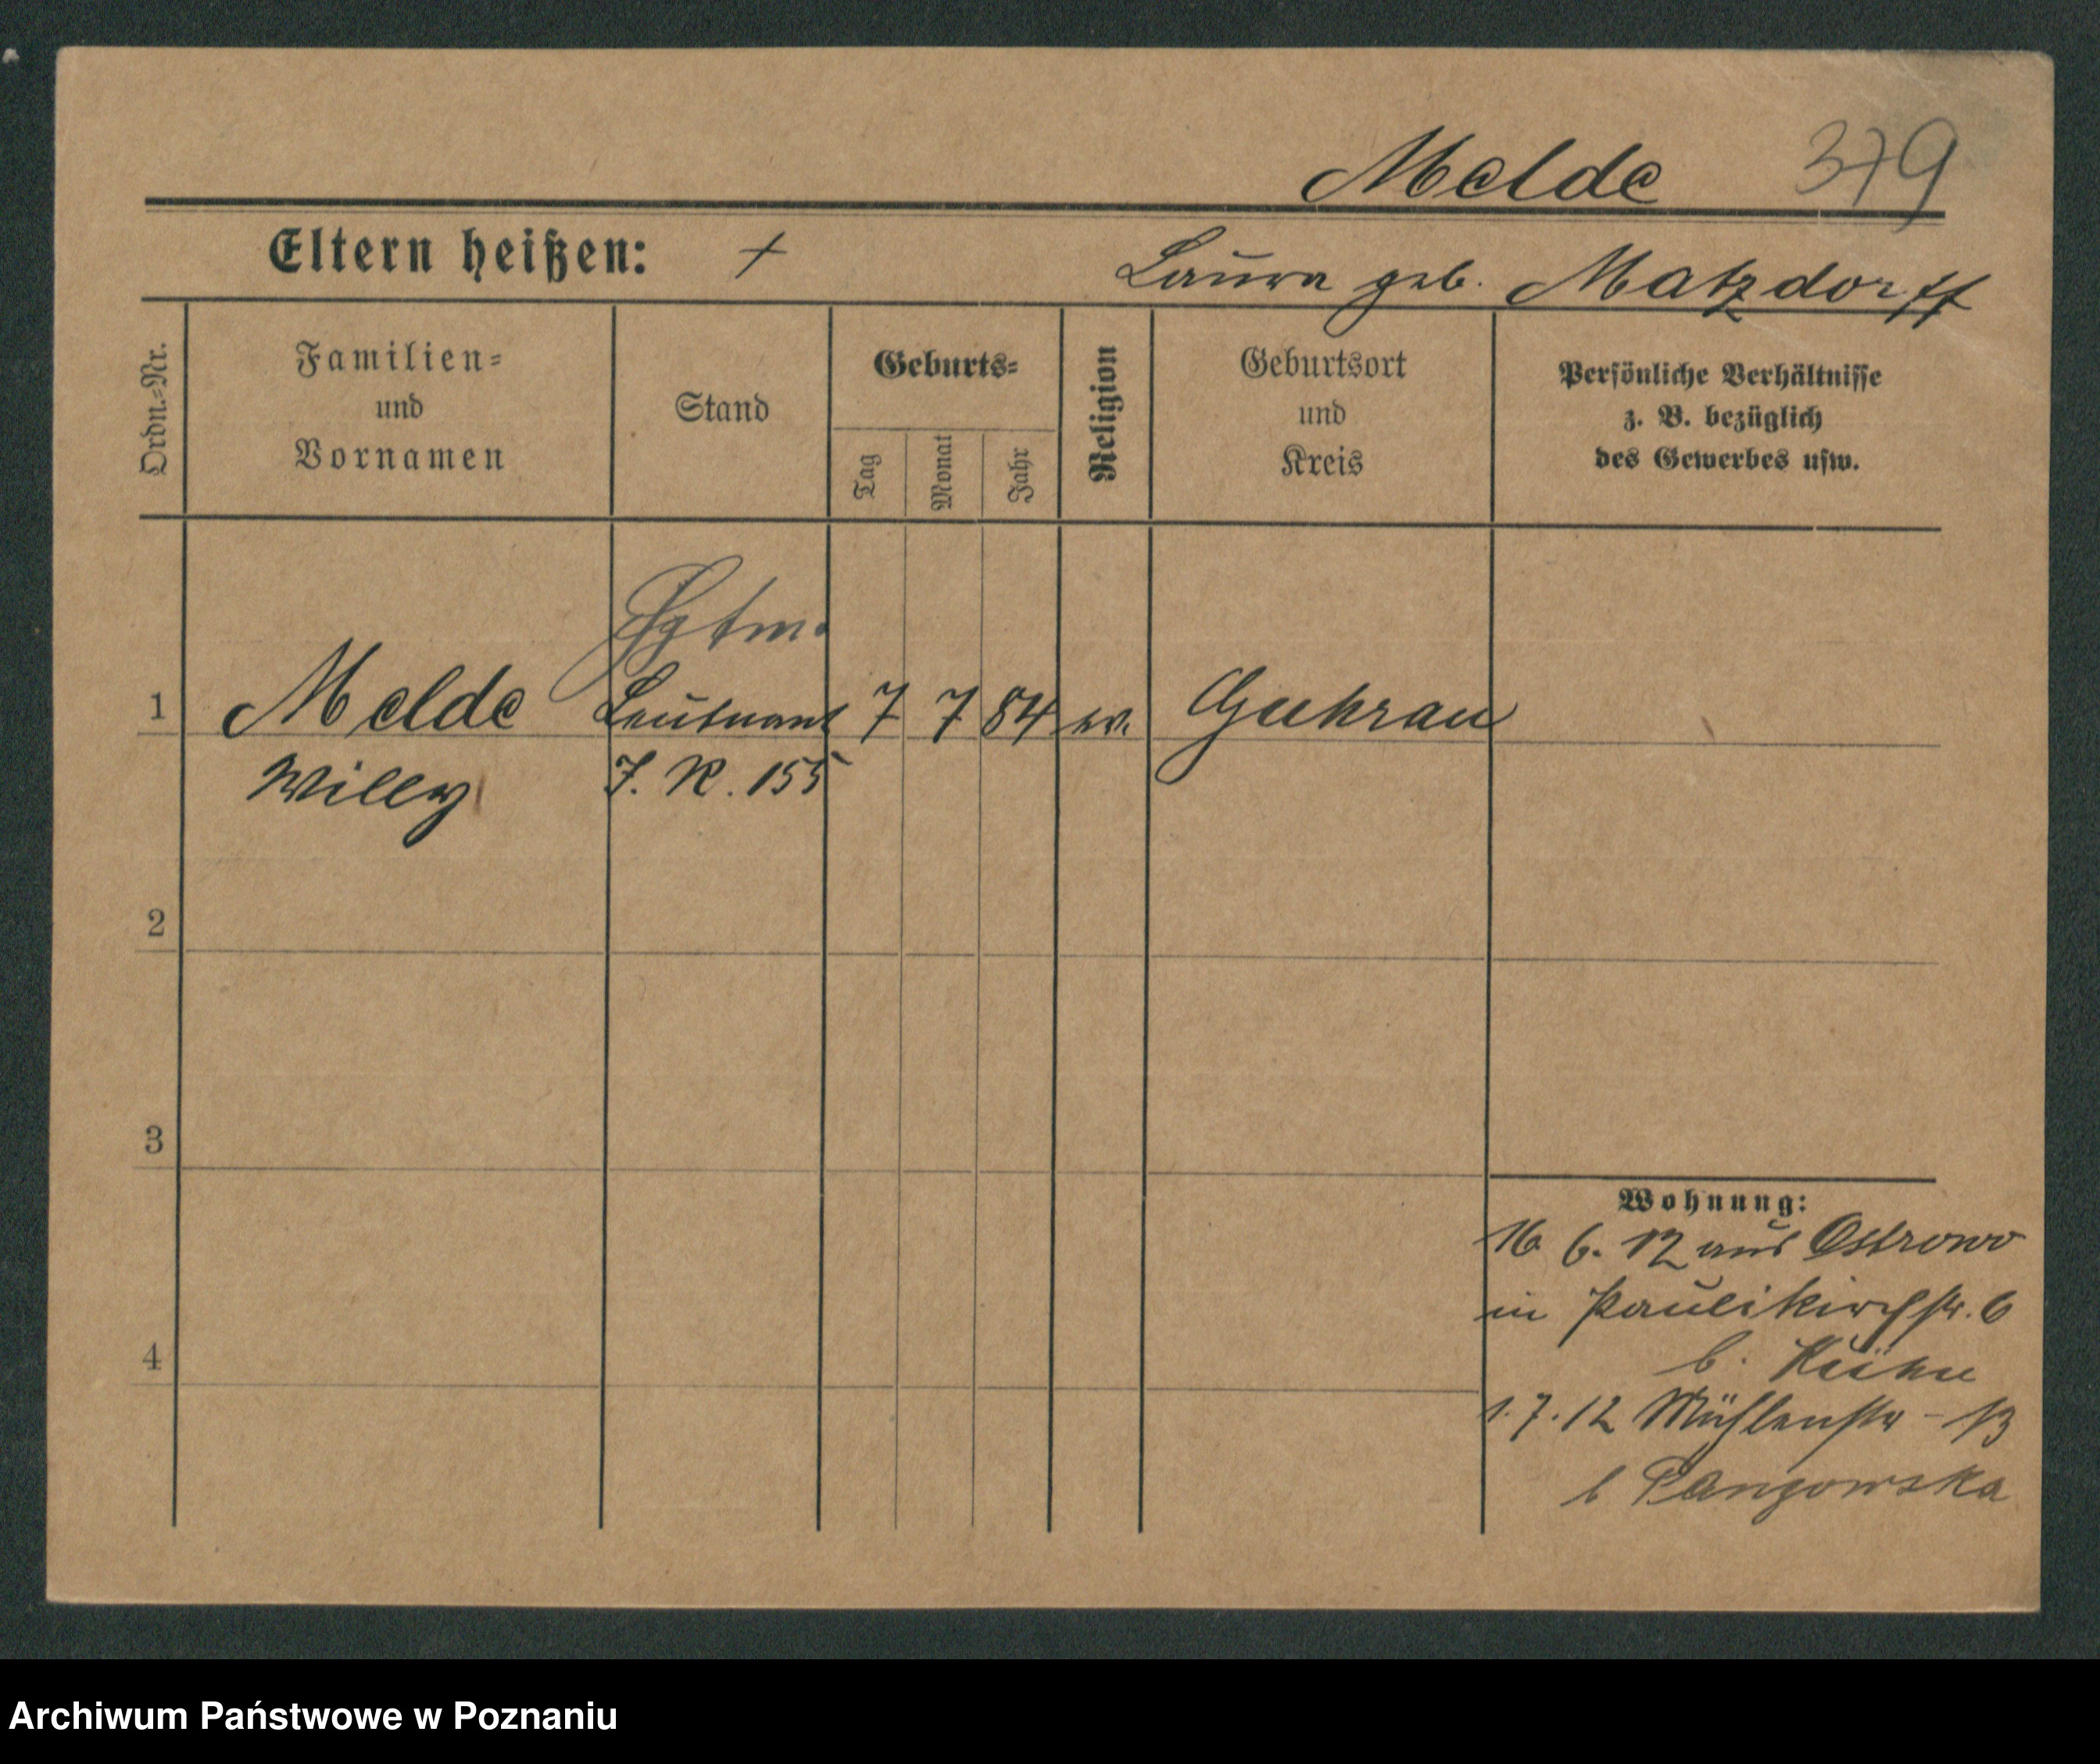 Melde 379
Eltern heißen: + Laura geb. Matzdorff
Ordn.=Nr.
Familien=
und
Vornamen
Stand
Geburts=
Tag
Monat
Jahr
Religion
Geburtsort
und
Kreis
Persönliche Verhältnisse
z. B. bezüglich
des Gewerbes usw.
1 Melde Leutnant 7 7 84 ev. Guhrau
Willy J. R. 155
2
3
4
Wohnung:
16 6. 12 aus Ostrowo
in Paulikirchstr. 6
b. Kühn
1. 7. 12 Mühlenstr - 13
b
Archiwum Państwowe w Poznaniu